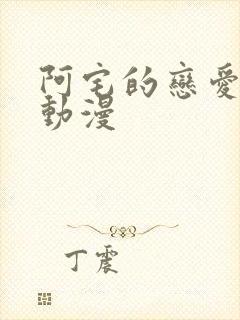 阿宅的戀愛
動漫
丁震